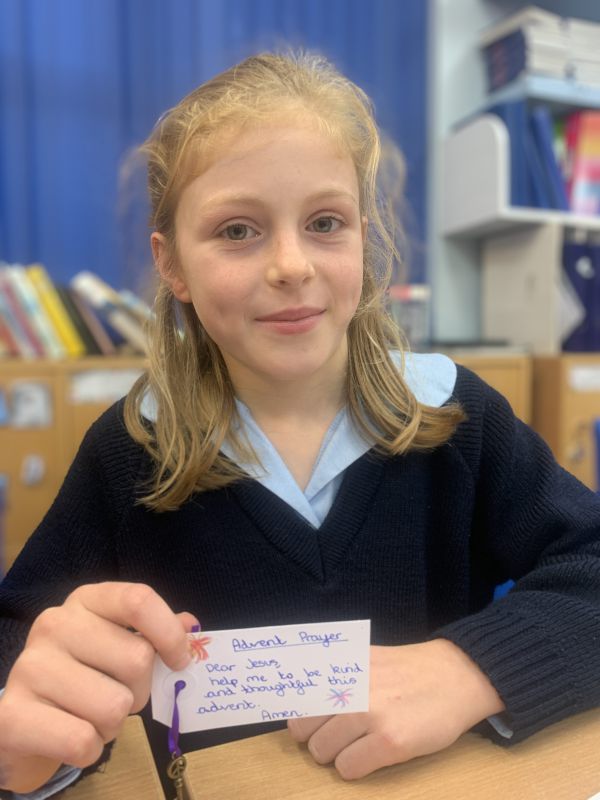 Advent Prayer
Dear Jesus,
help me to be kind
and thoughtful this
advent.
Amen.